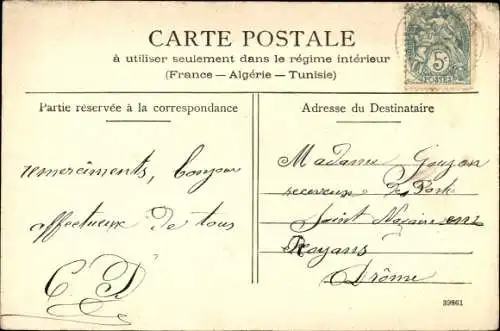 CARTE POSTALE
à utiliser seulement dans le régime intérieur
(France — Algérie — Tunisie)
Partie réservée à la correspondance
remerciments, bonjour
affectueux de tous
C D
Adresse du Destinataire
Madame Gouzon
receveuse de Poste
Saint Nazaire en
Royans
Drôme
5c
POSTES
39861